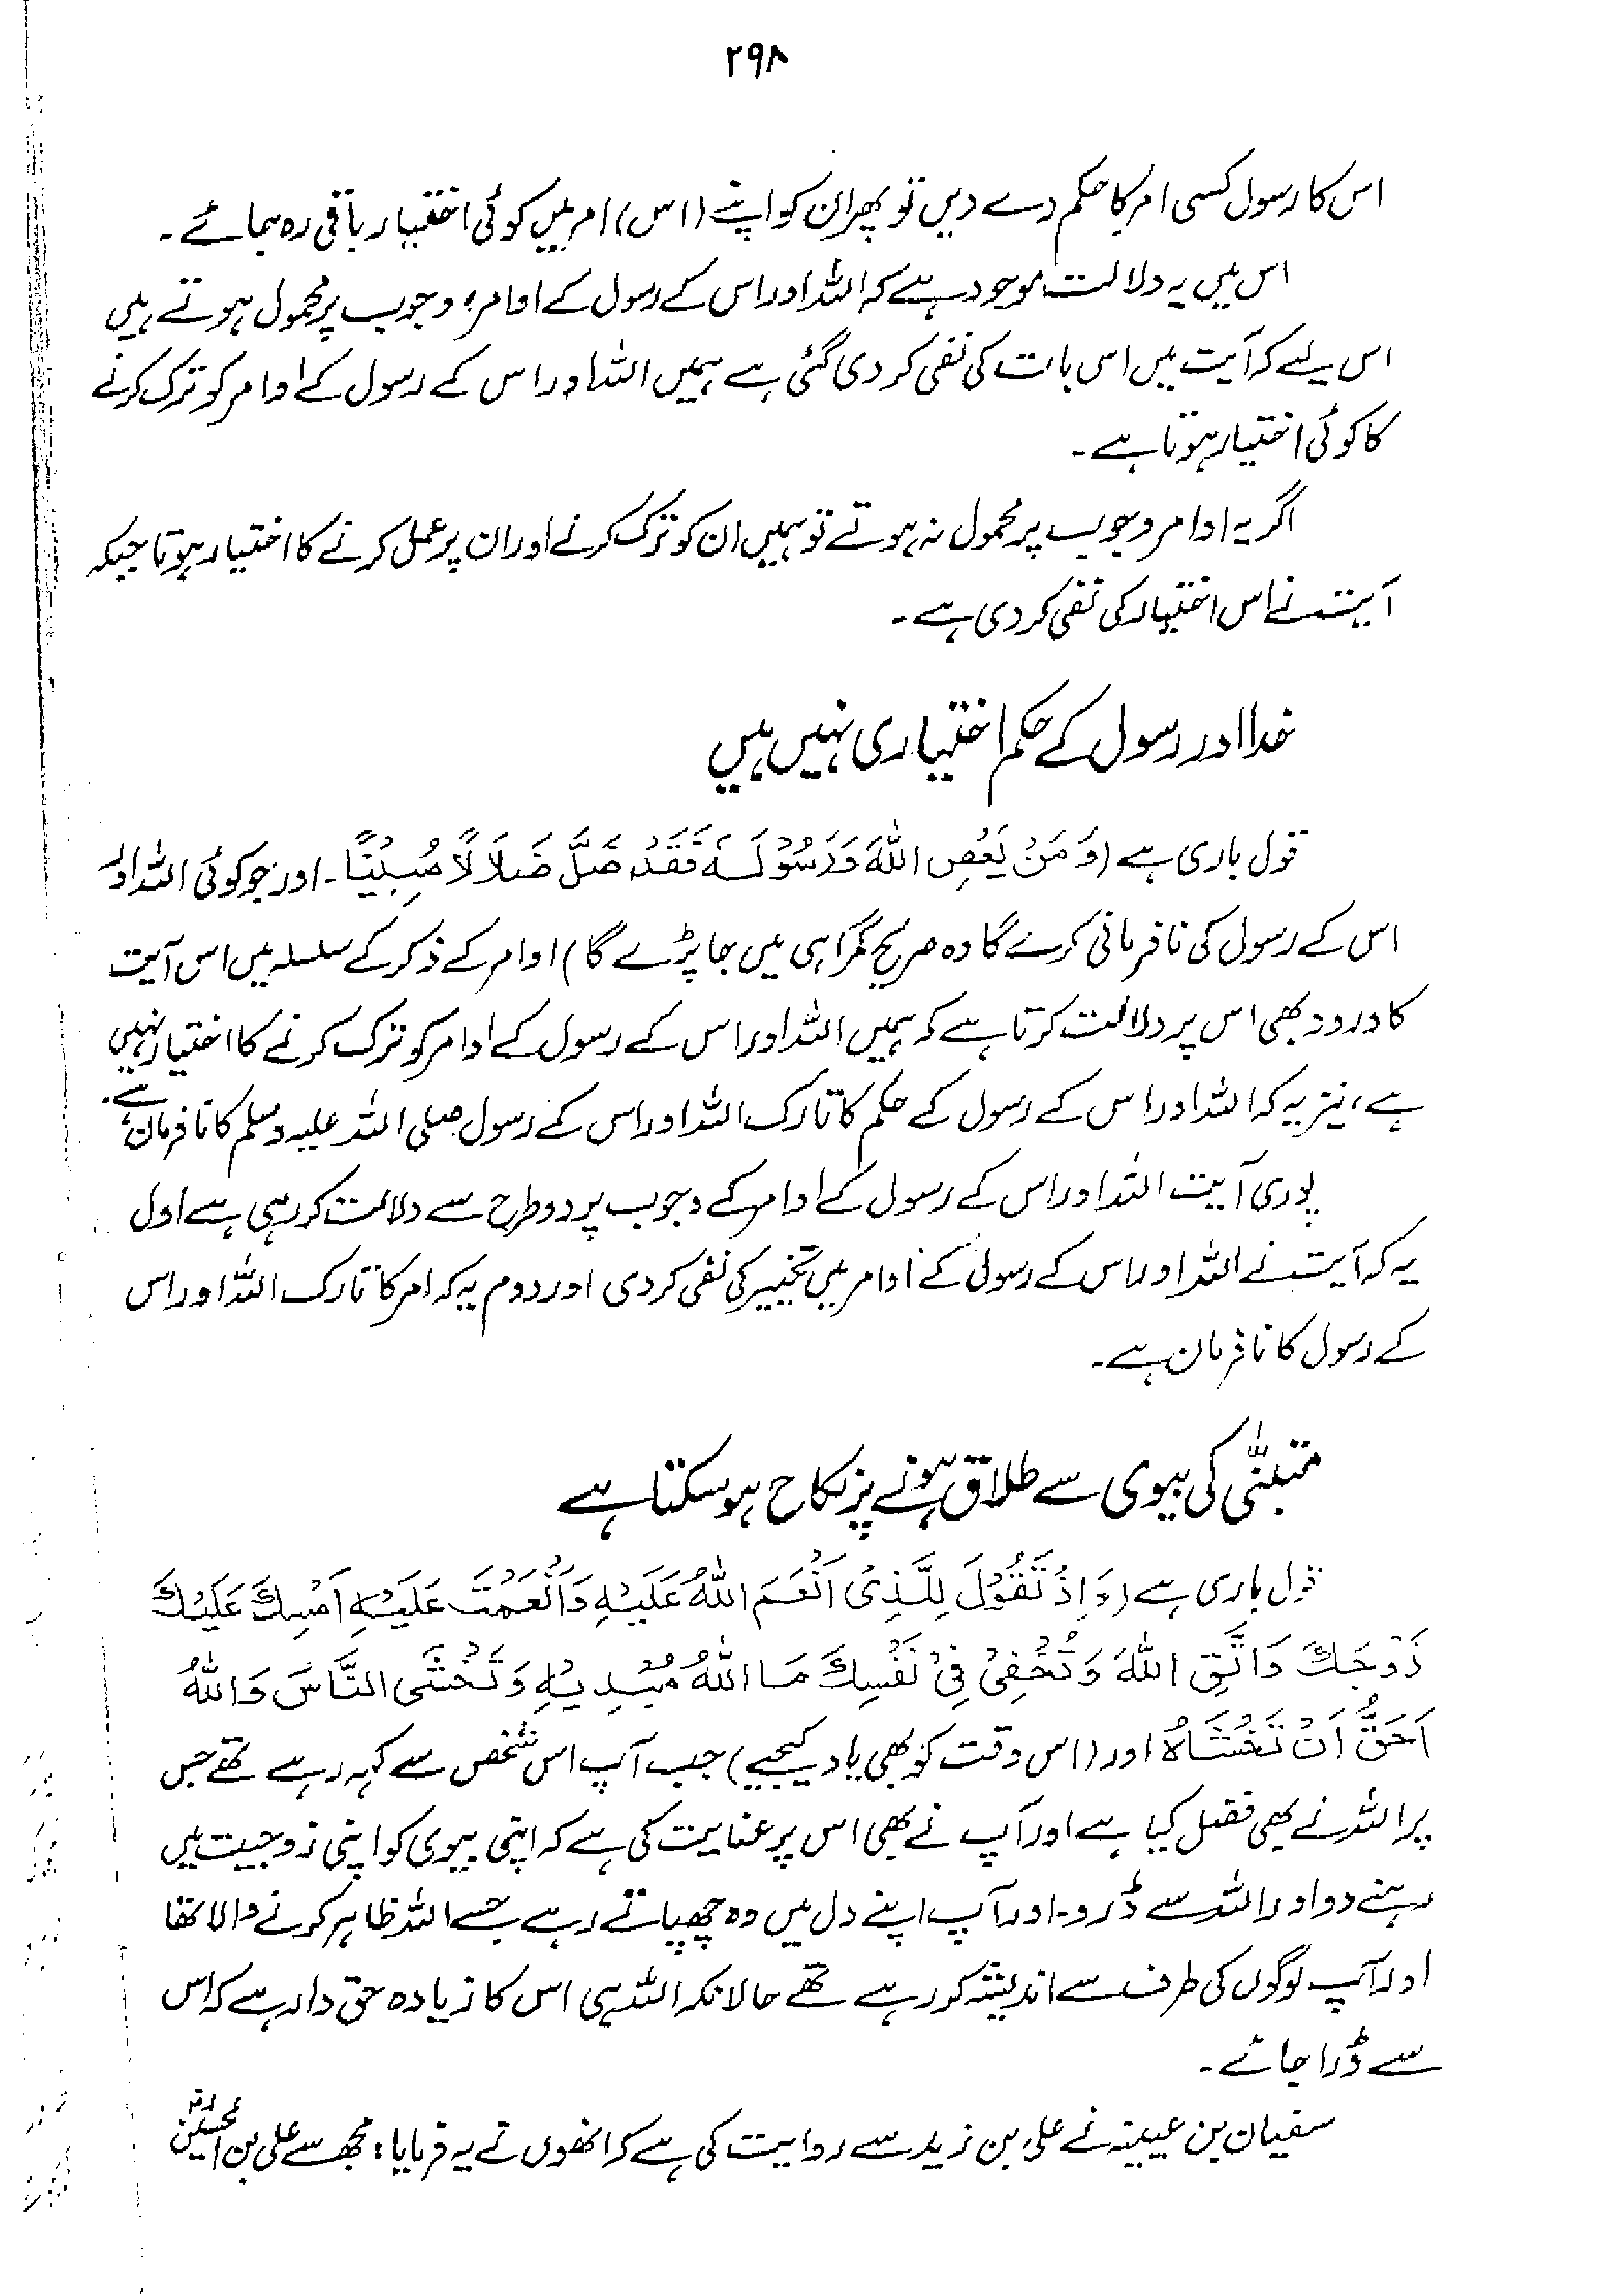 ۲۹۸
اس کا رسول کسی امر کا حکم دے دیں تو پھر ان کو اپنے (اس) امر میں کوئی اختیار باقی رہ جائے۔
اس میں یہ دلالت موجود ہے کہ اللہ اور اس کے رسول کے اوامر؛ وجوب پر محمول ہوتے ہیں
اس لیے کہ آیت میں اس بات کی نفی کر دی گئی ہے ہمیں اللہ اور اس کے رسول کے اوامر کو ترک کرنے
کا کوئی اختیار ہوتا ہے۔
اگر یہ اوامر وجوب پر محمول نہ ہوتے تو ہمیں ان کو ترک کرنے اور ان پر عمل کرنے کا اختیار ہوتا جبکہ
آیت نے اس اختیار کی نفی کر دی ہے۔
خدا اور رسول کے حکم اختیاری نہیں ہیں
قول باری ہے (وَمَنْ یَعْصِ اللّٰہَ وَرَسُوْلَہٗ فَقَدْ ضَلَّ ضَلَالًا مُّبِیْنًا۔ اور جو کوئی اللہ اور
اس کے رسول کی نافرمانی کرے گا وہ صریح گمراہی میں جا پڑے گا) اوامر کے ذکر کے سلسلہ میں اس آیت
کا ورود بھی اس پر دلالت کرتا ہے کہ ہمیں اللہ اور اس کے رسول کے اوامر کو ترک کرنے کا اختیار نہیں
ہے، نیز یہ کہ اللہ اور اس کے رسول کے حکم کا تارک اللہ اور اس کے رسول صلی اللہ علیہ وسلم کا نافرمان ہے۔
پوری آیت اللہ اور اس کے رسول کے اوامر کے وجوب پر دو طرح سے دلالت کر رہی ہے اول
یہ کہ آیت نے اللہ اور اس کے رسول کے اوامر میں تخییر کی نفی کر دی اور دوم یہ کہ امر کا تارک اللہ اور اس
کے رسول کا نافرمان ہے۔
متبنّٰی کی بیوی سے طلاق ہونے پر نکاح ہو سکتا ہے
قول باری ہے (وَاِذْ تَقُوْلَ لِلَّذِیْ اَنْعَمَ اللّٰہُ عَلَیْہِ وَاَنْعَمْتَ عَلَیْہِ اَمْسِکْ عَلَیْکَ
زَوْجَکَ وَاتَّقِ اللّٰہَ وَتُخْفِیْ فِیْ نَفْسِکَ مَا اللّٰہُ مُبْدِیْہِ وَتَخْشَی النَّاسَ وَاللّٰہُ
اَحَقُّ اَنْ تَخْشَاہُ اور (اس وقت کو بھی یاد کیجیے) جب آپ اس شخص سے کہہ رہے تھے جس
پر اللہ نے بھی فضل کیا ہے اور آپ نے بھی اس پر عنایت کی ہے کہ اپنی بیوی کو اپنی زوجیت میں
رہنے دو اور اللہ سے ڈرو۔ اور آپ اپنے دل میں وہ چھپاتے رہے جسے اللہ ظاہر کرنے والا تھا
اور آپ لوگوں کی طرف سے اندیشہ کر رہے تھے حالانکہ اللہ ہی اس کا زیادہ حق دار ہے کہ اس
سے ڈرا جائے۔
سفیان بن عیینہ نے علی بن زید سے روایت کی ہے کہ انھوں نے یہ فرمایا؛ مجھ سے علی بن الحسینؓ